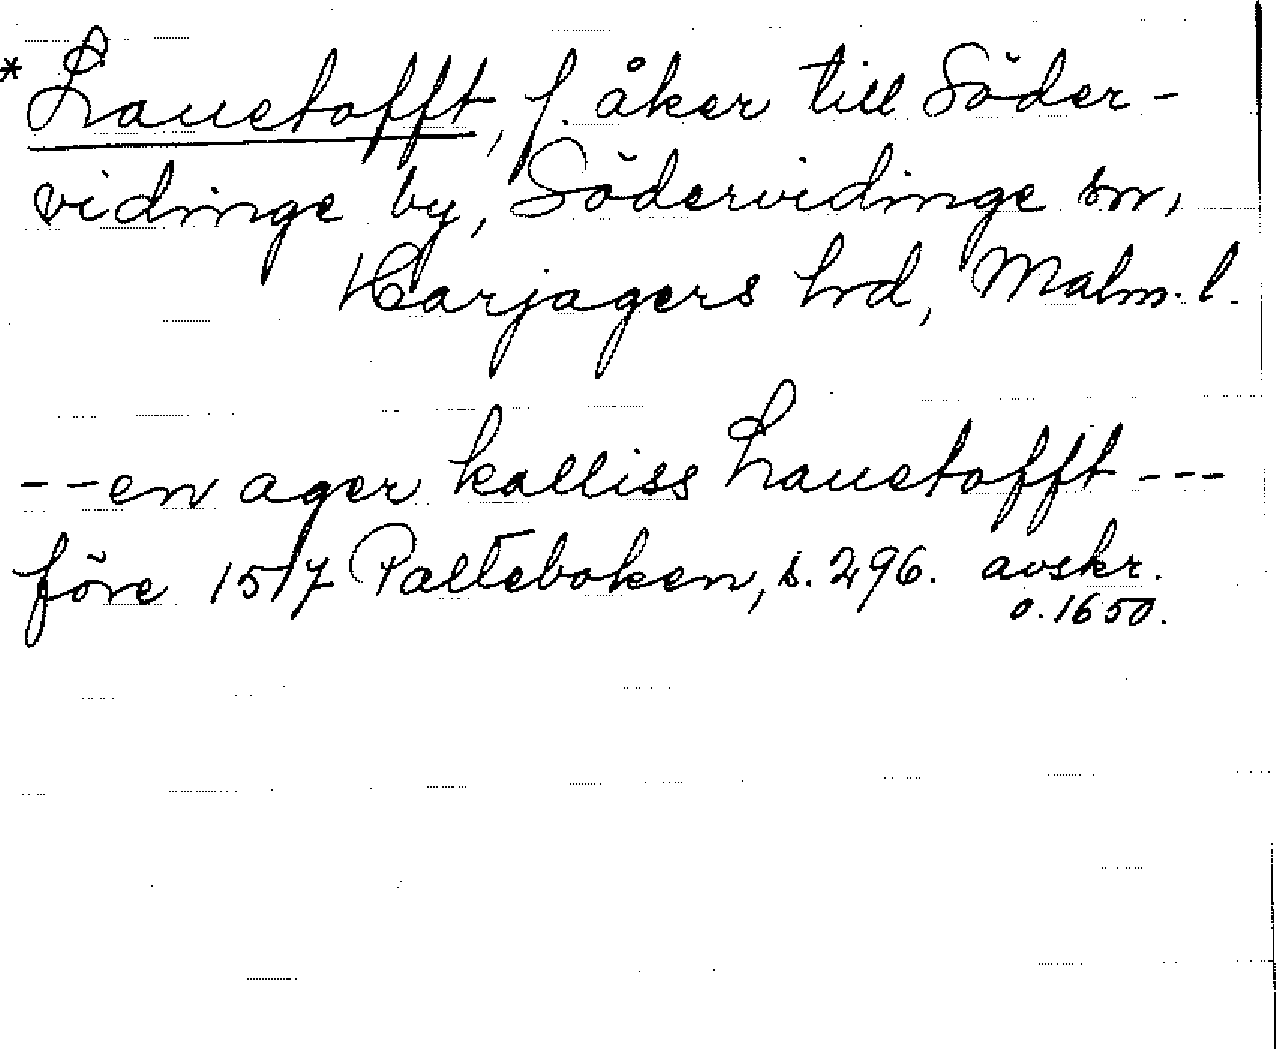 *Lauetofft, f. åker till Söder-
vidinge by, Södervidinge sn,
Harjagers hd, Malm. l.
--en ager kalliss Lauetofft ---
före 1517 Palteboken, s. 296. avskr.
o. 1650.